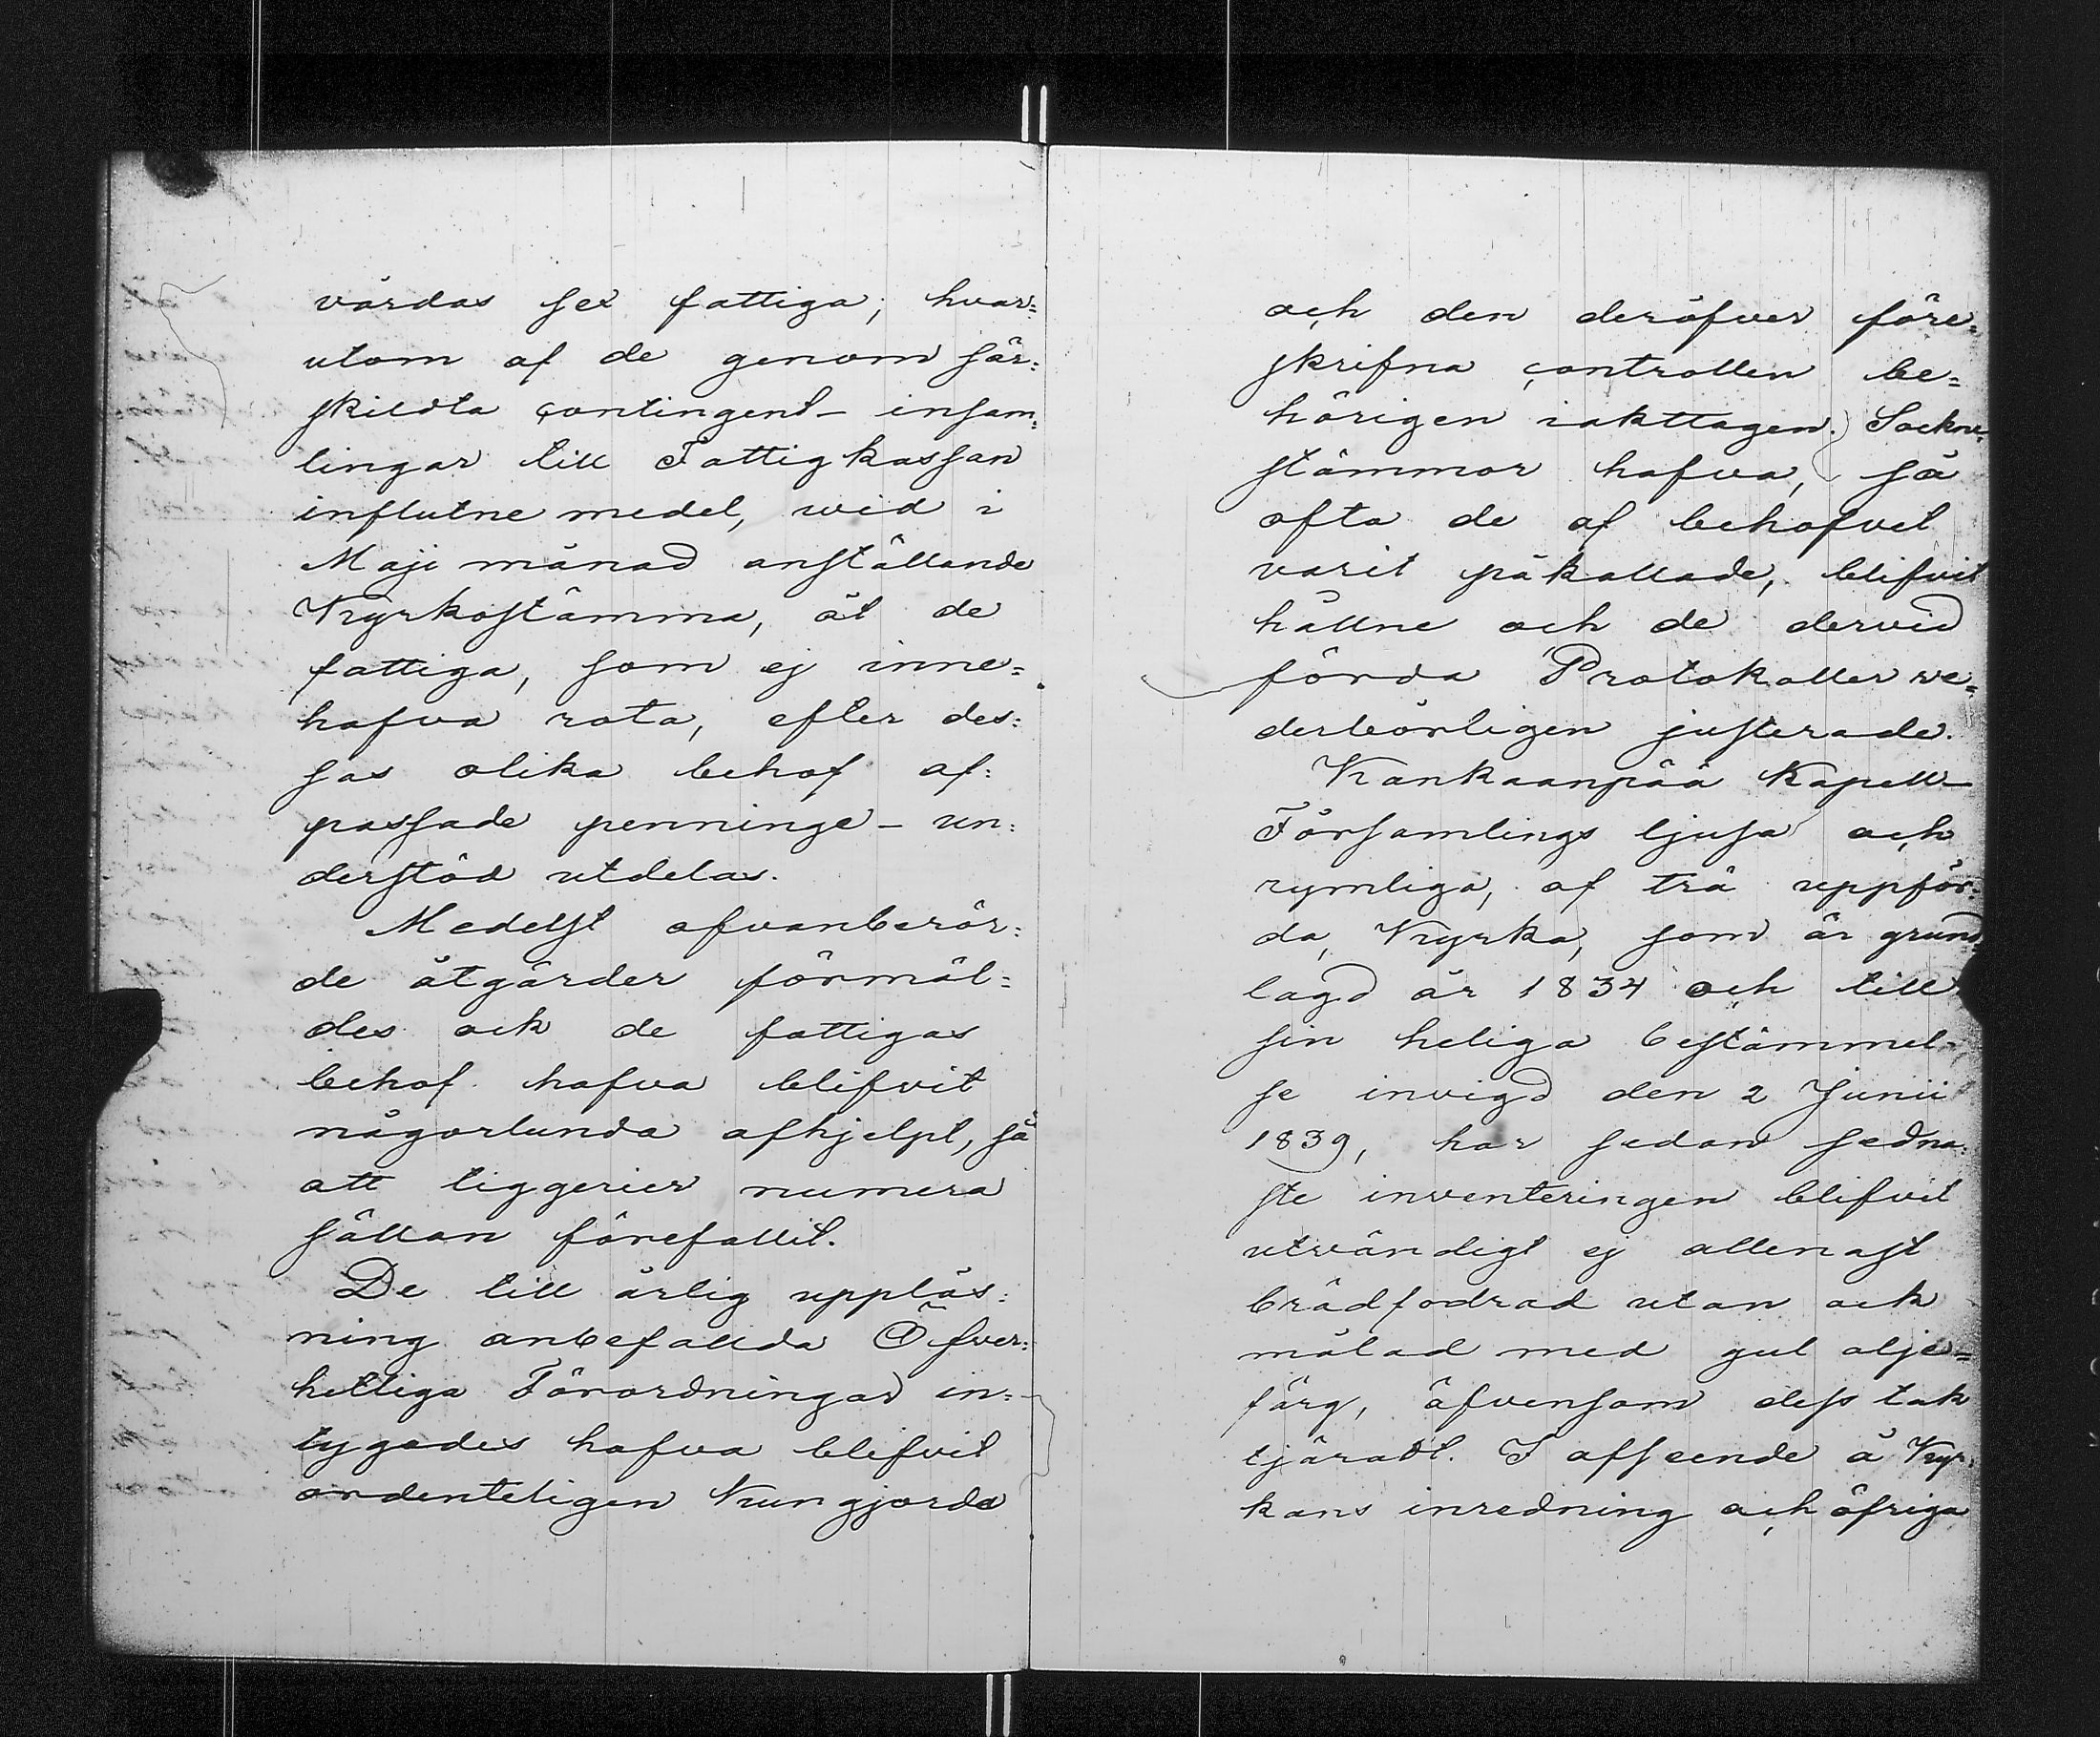 vårdas sex fattiga; hvar=
utom af de genom sär=
skildta contingent- insam=
lingar till Fattigkassan
influtne medel, wid i
Maji månad anställande
Kyrkostämma, åt de
fattiga, som ej inne=
hafva rota, efter des=
sas olika behof af=
passade penninge- un=
derstöd utdelas.
Medelst ofvanberör=
de åtgärder förmäl=
des ock de fattigas
behof hafva blifvit
någorlunda afhjelpt, så
att tiggerier numera
sällan förefallit.
De till årlig uppläs=
ning anbefallda Öfver=
hetliga Förordningar in=
tygades hafva blifvit
ordenteligen kungjorda
och den deröfver före=
skrifna controllen be=
hörigen iakttagen. Sockne=
stämmor hafva, så
ofta de af behofvet
varit påkallade, blifvit
hållne och de dervid
förda Protokoller ve=
derbörligen justerade.
Kankaanpää Kapell-
Församlings ljusa och
rymliga, af trä uppför=
da, Kyrka, som är grund
lagd år 1834 och till
sin heliga bestämmel-
se invigd den 2 Junii
1839, har sedan sedna=
ste inventeringen blifvit
utvändigt ej allenast
brädfodrad utan ock
målad med gul olje=
färg, äfvensom dess tak
tjäradt. I afseende å Kyr=
kans inredning och öfriga